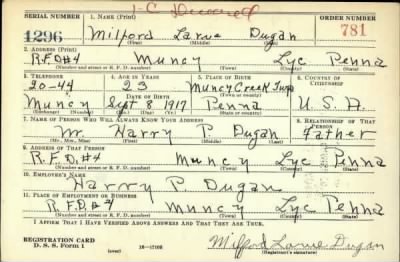 1-C Deceased
SERIAL NUMBER 1. NAME (Print) ORDER NUMBER
1296 Milford Larue Dugan 781
(First) (Middle) (Last)
2. ADDRESS (Print)
R.F.D #4 Muncy Lyc Penna
(Number and street or R. F. D. number) (Town) (County) (State)
3. TELEPHONE 4. AGE IN YEARS 5. PLACE OF BIRTH 6. COUNTRY OF CITIZENSHIP
20-44 23 Muncy Creek Twp
DATE OF BIRTH (Town or county)
Muncy Sept 8 1917 Penna U.S.A.
(Exchange) (Number) (Mo.) (Day) (Yr.) (State or country)
7. NAME OF PERSON WHO WILL ALWAYS KNOW YOUR ADDRESS 8. RELATIONSHIP OF THAT PERSON
Mr. Harry P Dugan Father
(Mr., Mrs., Miss) (First) (Middle) (Last)
9. ADDRESS OF THAT PERSON
R.F.D. #4 Muncy Lyc Penna
(Number and street or R. F. D. number) (Town) (County) (State)
10. EMPLOYER'S NAME
Harry P Dugan
11. PLACE OF EMPLOYMENT OR BUSINESS
R.F.D. #4 Muncy Lyc Penna
(Number and street or R. F. D. number) (Town) (County) (State)
I AFFIRM THAT I HAVE VERIFIED ABOVE ANSWERS AND THAT THEY ARE TRUE.
REGISTRATION CARD
D. S. S. Form 1 (over) 16-17105 Milford Larue Dugan
(Registrant's signature)